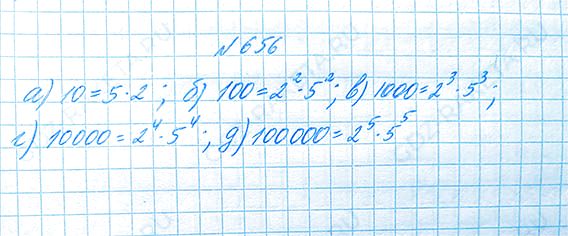 №656
а) 10 = 5 · 2 ; б) 100 = 2² · 5² ; в) 1000 = 2³ · 5³ ;
г) 10000 = 2⁴ · 5⁴ ; д) 100000 = 2⁵ · 5⁵